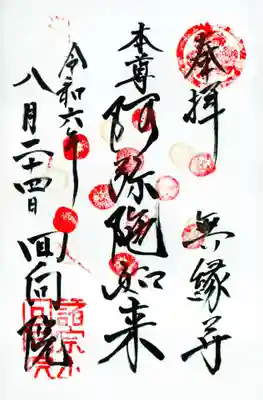 奉拝
無縁寺
本尊
阿弥陀如来
令和六年
八月二十四日
回向院
諸宗山
回向院